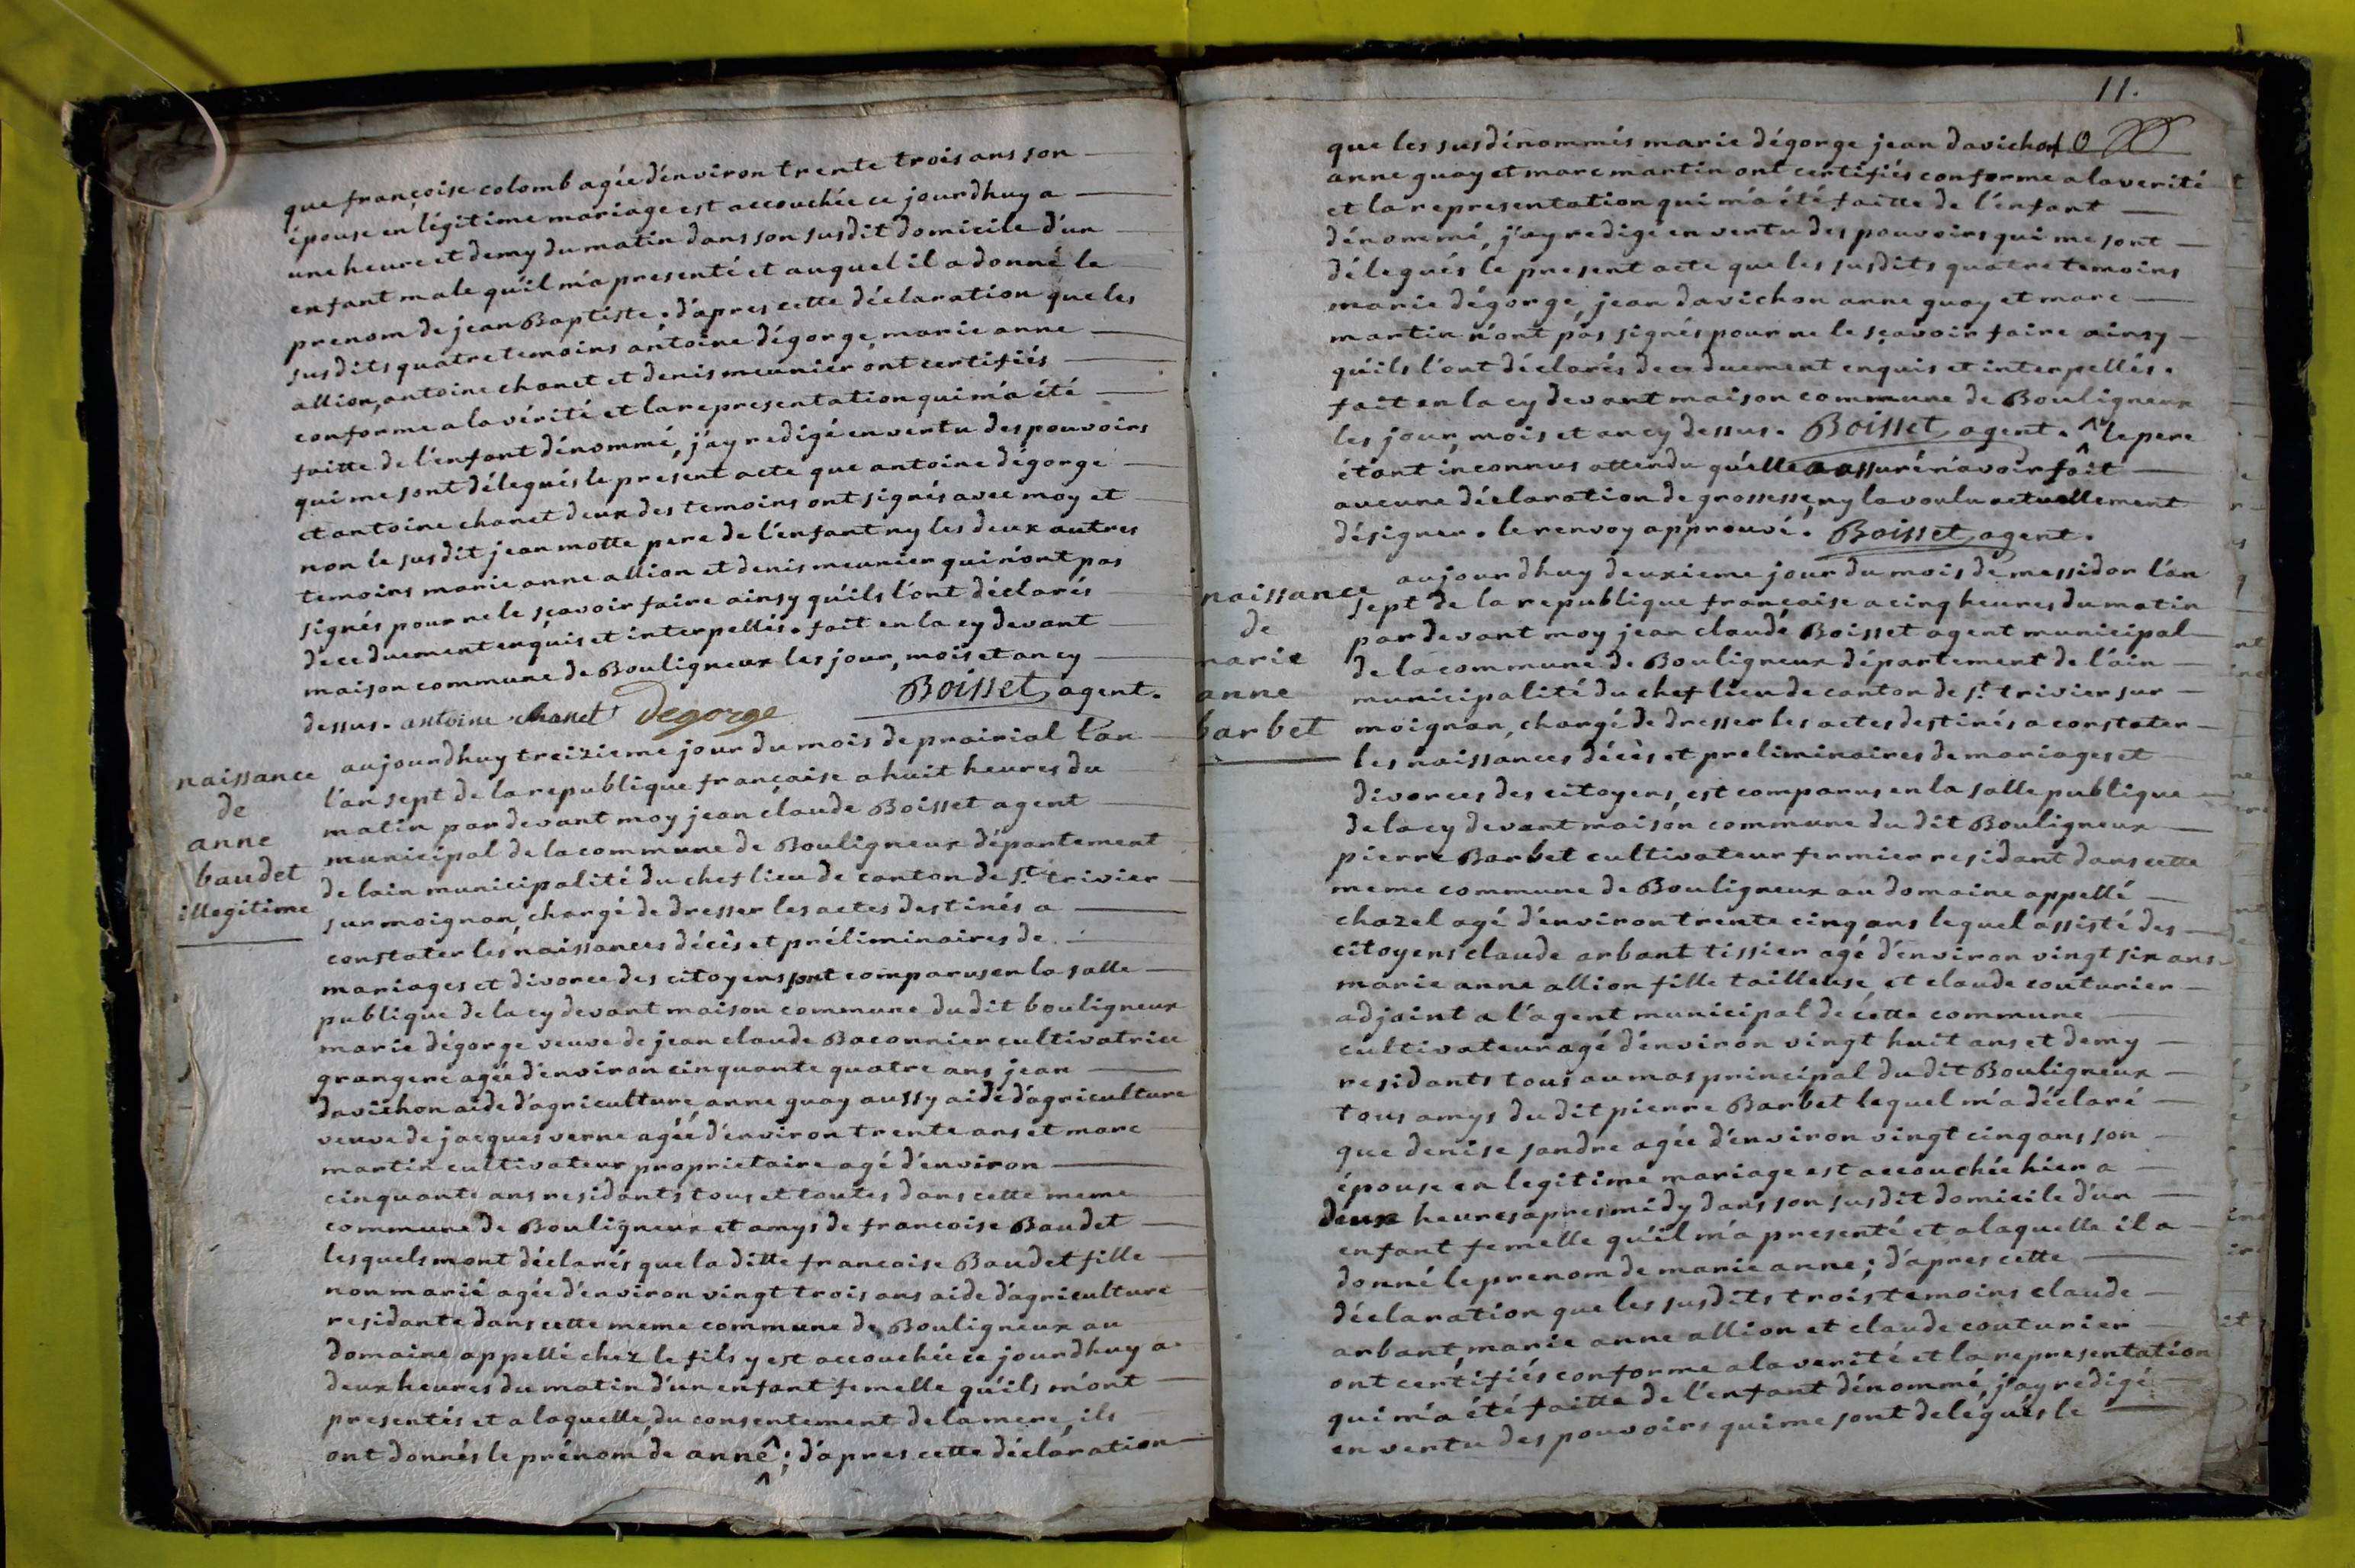 que françoise colomb agée d'environ trente trois ans son
épouse en légitime mariage est accouchée ce jourdhuy a
une heure et demy du matin dans son susdit domicile d'un
enfant male qu'il m'a presenté et auquel il a donné le
prenom de jean Baptiste. d'apres cette déclaration que les
susdits quatre temoins antoine dégorge, marie anne
allion, antoine chanet et denis meunier ont certifiés
conforme a la vérité et la representation qui m'a été
faitte de l'enfant dénommé, j'ay redigé en vertu des pouvoirs
qui me sont délegués le present acte que antoine dégorge
et antoine chanet deux des temoins ont signés avec moy et
non le susdit jean motte pere de l'enfant ny les deux autres
temoins marie anne allion et denis meunier qui n'ont pas
signés pour ne le sçavoir faire ainsy qu'ils l'ont déclarés
de ce duement enquis et interpellés. fait en la cy devant
maison commune de Bouligneux les jour, mois et an cy
dessus. antoine chanet degorge Boisset agent.
naissance
de
anne
baudet
illegitime
aujourdhuy treizieme jour du mois de prairial l'an
l'an sept de la republique française a huit heures du
matin par devant moy jean claude Boisset agent
municipal de la commune de Bouligneux département
de lain municipalité du chef lieu de canton de st. trivier
sur moignan, chargé de dresser les actes destinés a
constater les naissances décès et préliminaires de
mariages et divorce des citoyens sont comparus en la salle
publique de la cy devant maison commune du dit bouligneux
marie dégorge veuve de jean claude Baconnier cultivatrice
grangere agée d'environ cinquante quatre ans jean
davichon aide d'agriculture, anne guay aussy aide d'agriculture
veuve de jacques verne agée d'environ trente ans et marc
martin cultivateur proprietaire agé d'environ
cinquante ans residants tous et toutes dans cette meme
commune de Bouligneux et amys de francoise Baudet
lesquels mont déclarés que la ditte francoise Baudet fille
non marié agée d'environ vingt trois ans aide d'agriculture
residante dans cette meme commune de Bouligneux au
domaine appellé chez le fils y est accouchée ce jourdhuy a
deux heures du matin d'un enfant femelle qu'ils m'ont
presentés et a laquelle, du consentement de la mere, ils
ont donnés le prénom de anne ^; d'apres cette déclaration
11.
que les susdénommés marie dégorge jean davichon
anne guay et marc martin ont certifiés conforme a la verité
et la representation qui m'a été faitte de l'enfant
dénommé, j'ay redigé en vertu des pouvoirs qui me sont
délegués le present acte que les susdits quatre temoins
marie dégorge, jean davichon anne guay et marc
martin n'ont pas signés pour ne le sçavoir faire ainsy
qu'ils l'ont déclarés de ce duement enquis et interpellés.
fait en la cy devant maison commune de Bouligneux
les jour, mois et an cy dessus. Boisset agent. ^ le pere
étant inconnus attendu qu'elle a assuré n'avoir fait
aucune déclaration de grossesse, ny la voulu actuellement
désigner. le renvoy approuvé. Boisset agent.
naissance
de
marie
anne
barbet
aujourdhuy deuxieme jour du mois de messidor l'an
sept de la republique française a cinq heures du matin
par devant moy jean claude Boisset agent municipal
de la commune de Bouligneux département de l'ain
municipalité du chef lieu de canton de st. trivier sur
moignan, chargé de dresser les actes destinés a constater
les naissances décès et preliminaires de mariages et
divorces des citoyens, est comparus en la salle publique
de la cy devant maison commune du dit Bouligneux
pierre Barbet cultivateur fermier residant dans cette
meme commune de Bouligneux au domaine appellé
chazel agé d'environ trente cinq ans lequel assisté des
citoyens claude arbant tissier agé d'environ vingt six ans
marie anne allion fille tailleuse et claude couturier
adjoint a l'agent municipal de cette commune
cultivateur agé d'environ vingt huit ans et demy
residants tous au mas principal du dit Bouligneux
tous amys du dit pierre Barbet lequel m'a déclaré
que denise sandre agée d'environ vingt cinq ans son
épouse en legitime mariage est accouchée hier a
deux heures apres midy dans son susdit domicile d'un
enfant femelle qu'il m'a presenté et a laquelle il a
donné le prenom de marie anne; d'apres cette
déclaration que les susdits trois temoins claude
arbant, marie anne allion et claude couturier
ont certifiés conforme a la verité et la representation
qui m'a été faitte de l'enfant dénommé, j'ay redigé
en vertu des pouvoirs qui me sont delégués le